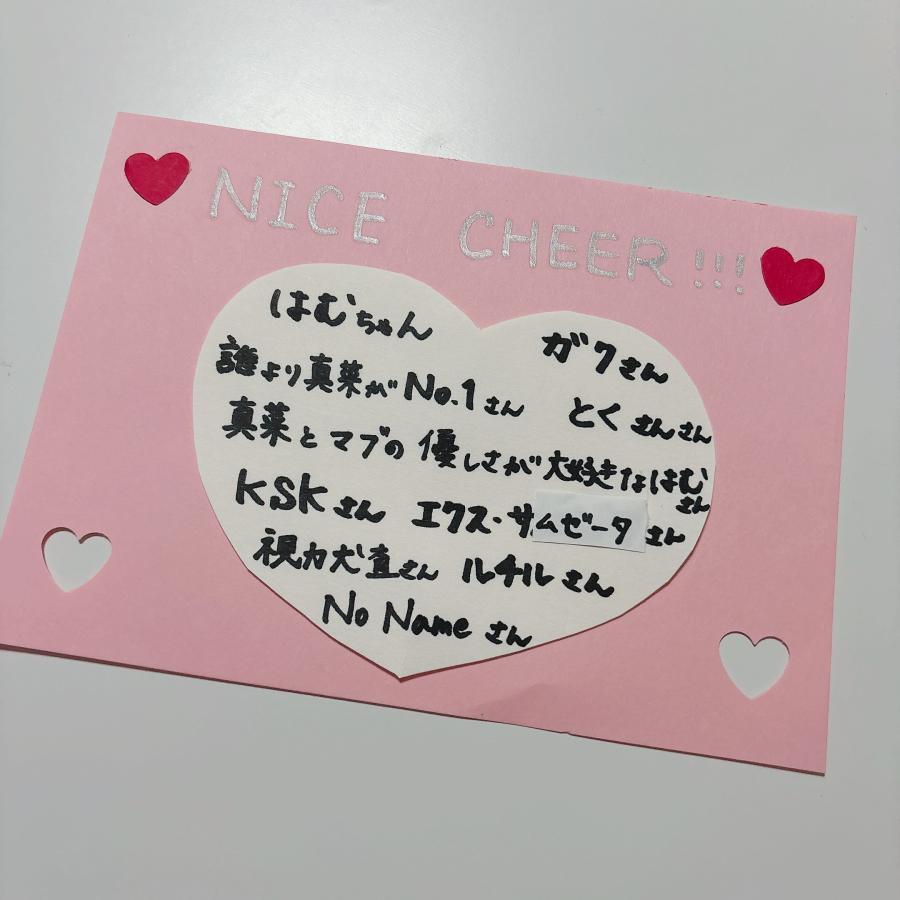 NICE CHEER!!!
はむちゃん ガクさん
誰より真菜がNo.1さん とくさんさん
真菜とマブの優しさが大好きなはむさん
KSKさん エクス・サムゼータさん
視力犬査さん ルチルさん
No Nameさん